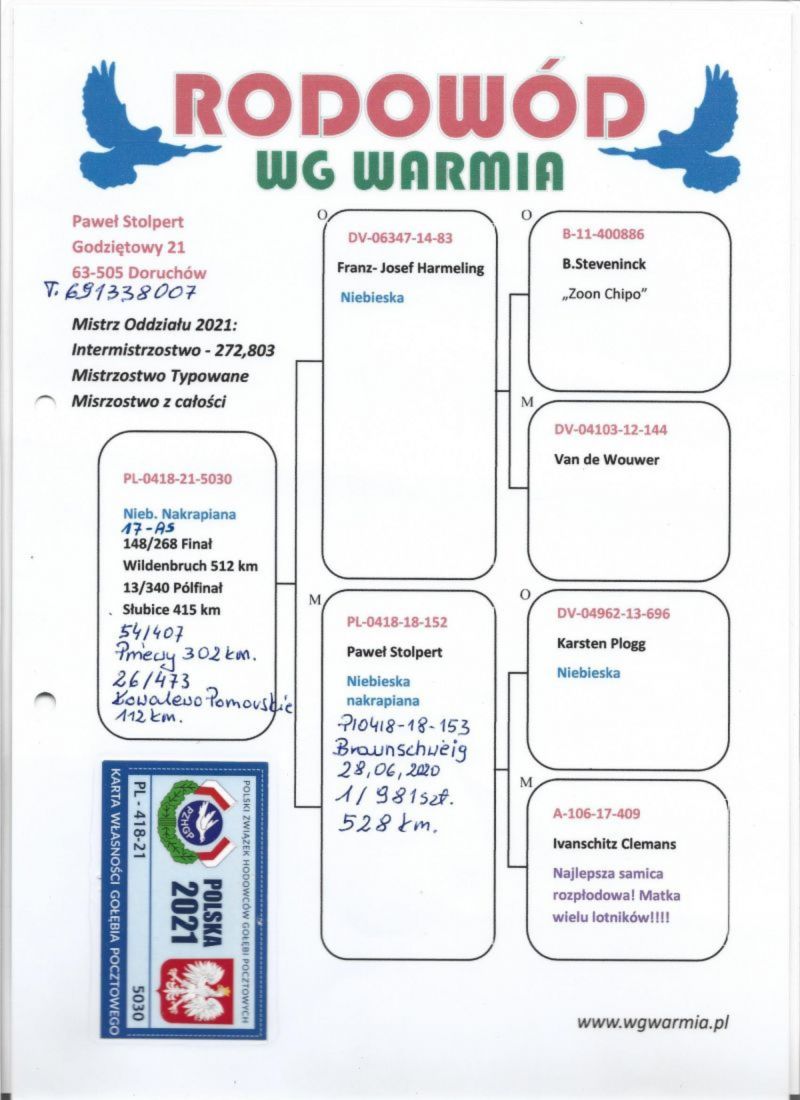 RODOWÓD
WG WARMIA
Paweł Stolpert
Godziętowy 21
63-505 Doruchów
T. 691338007
Mistrz Oddziału 2021:
Intermistrzostwo - 272,803
Mistrzostwo Typowane
Misrzostwo z całości
PL-0418-21-5030
Nieb. Nakrapiana
17-AS
148/268 Finał
Wildenbruch 512 km
13/340 Półfinał
Słubice 415 km
54/407
Pniewy 302 km.
26/473
Kowalewo Pomorskie
112 km.
O
DV-06347-14-83
Franz- Josef Harmeling
Niebieska
M
PL-0418-18-152
Paweł Stolpert
Niebieska
nakrapiana
Pl0418-18-153
Braunschweig
28,06,2020
1/981szt.
528 km.
O
B-11-400886
B.Steveninck
„Zoon Chipo”
M
DV-04103-12-144
Van de Wouwer
O
DV-04962-13-696
Karsten Plogg
Niebieska
M
A-106-17-409
Ivanschitz Clemans
Najlepsza samica
rozpłodowa! Matka
wielu lotników!!!!
POLSKI ZWIĄZEK HODOWCÓW GOŁĘBI POCZTOWYCH
PZHGP
POLSKA
2021
PL - 418-21
5030
KARTA WŁASNOŚCI GOŁĘBIA POCZTOWEGO
www.wgwarmia.pl